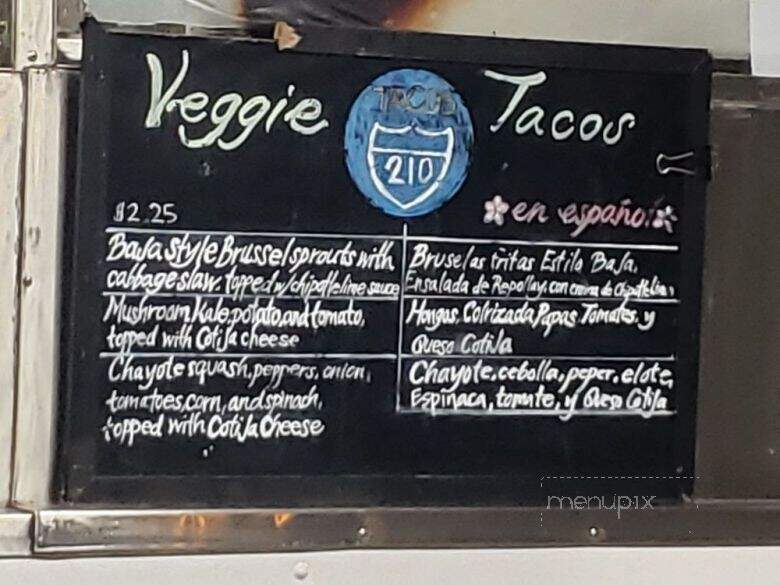 Veggie Tacos
TACOS
210
$2.25
en español
Baja style Brussel sprouts with
cabbage slaw. topped w/ chipotle lime sauce
Mushroom, Kale, potato, and tomato,
topped with Cotija cheese
Chayote squash, peppers, onion,
tomatoes, corn, and spinach,
topped with Cotija Cheese
Bruselas fritas Estilo Baja,
Ensalada de Repollo y, con crema de Chipotle Lima,
Hongas, Colrizada, Papas, Tomates, y
Queso Cotija
Chayote, cebolla, peper, elote,
Espinaca, tomate, y Queso Cotija
menupix